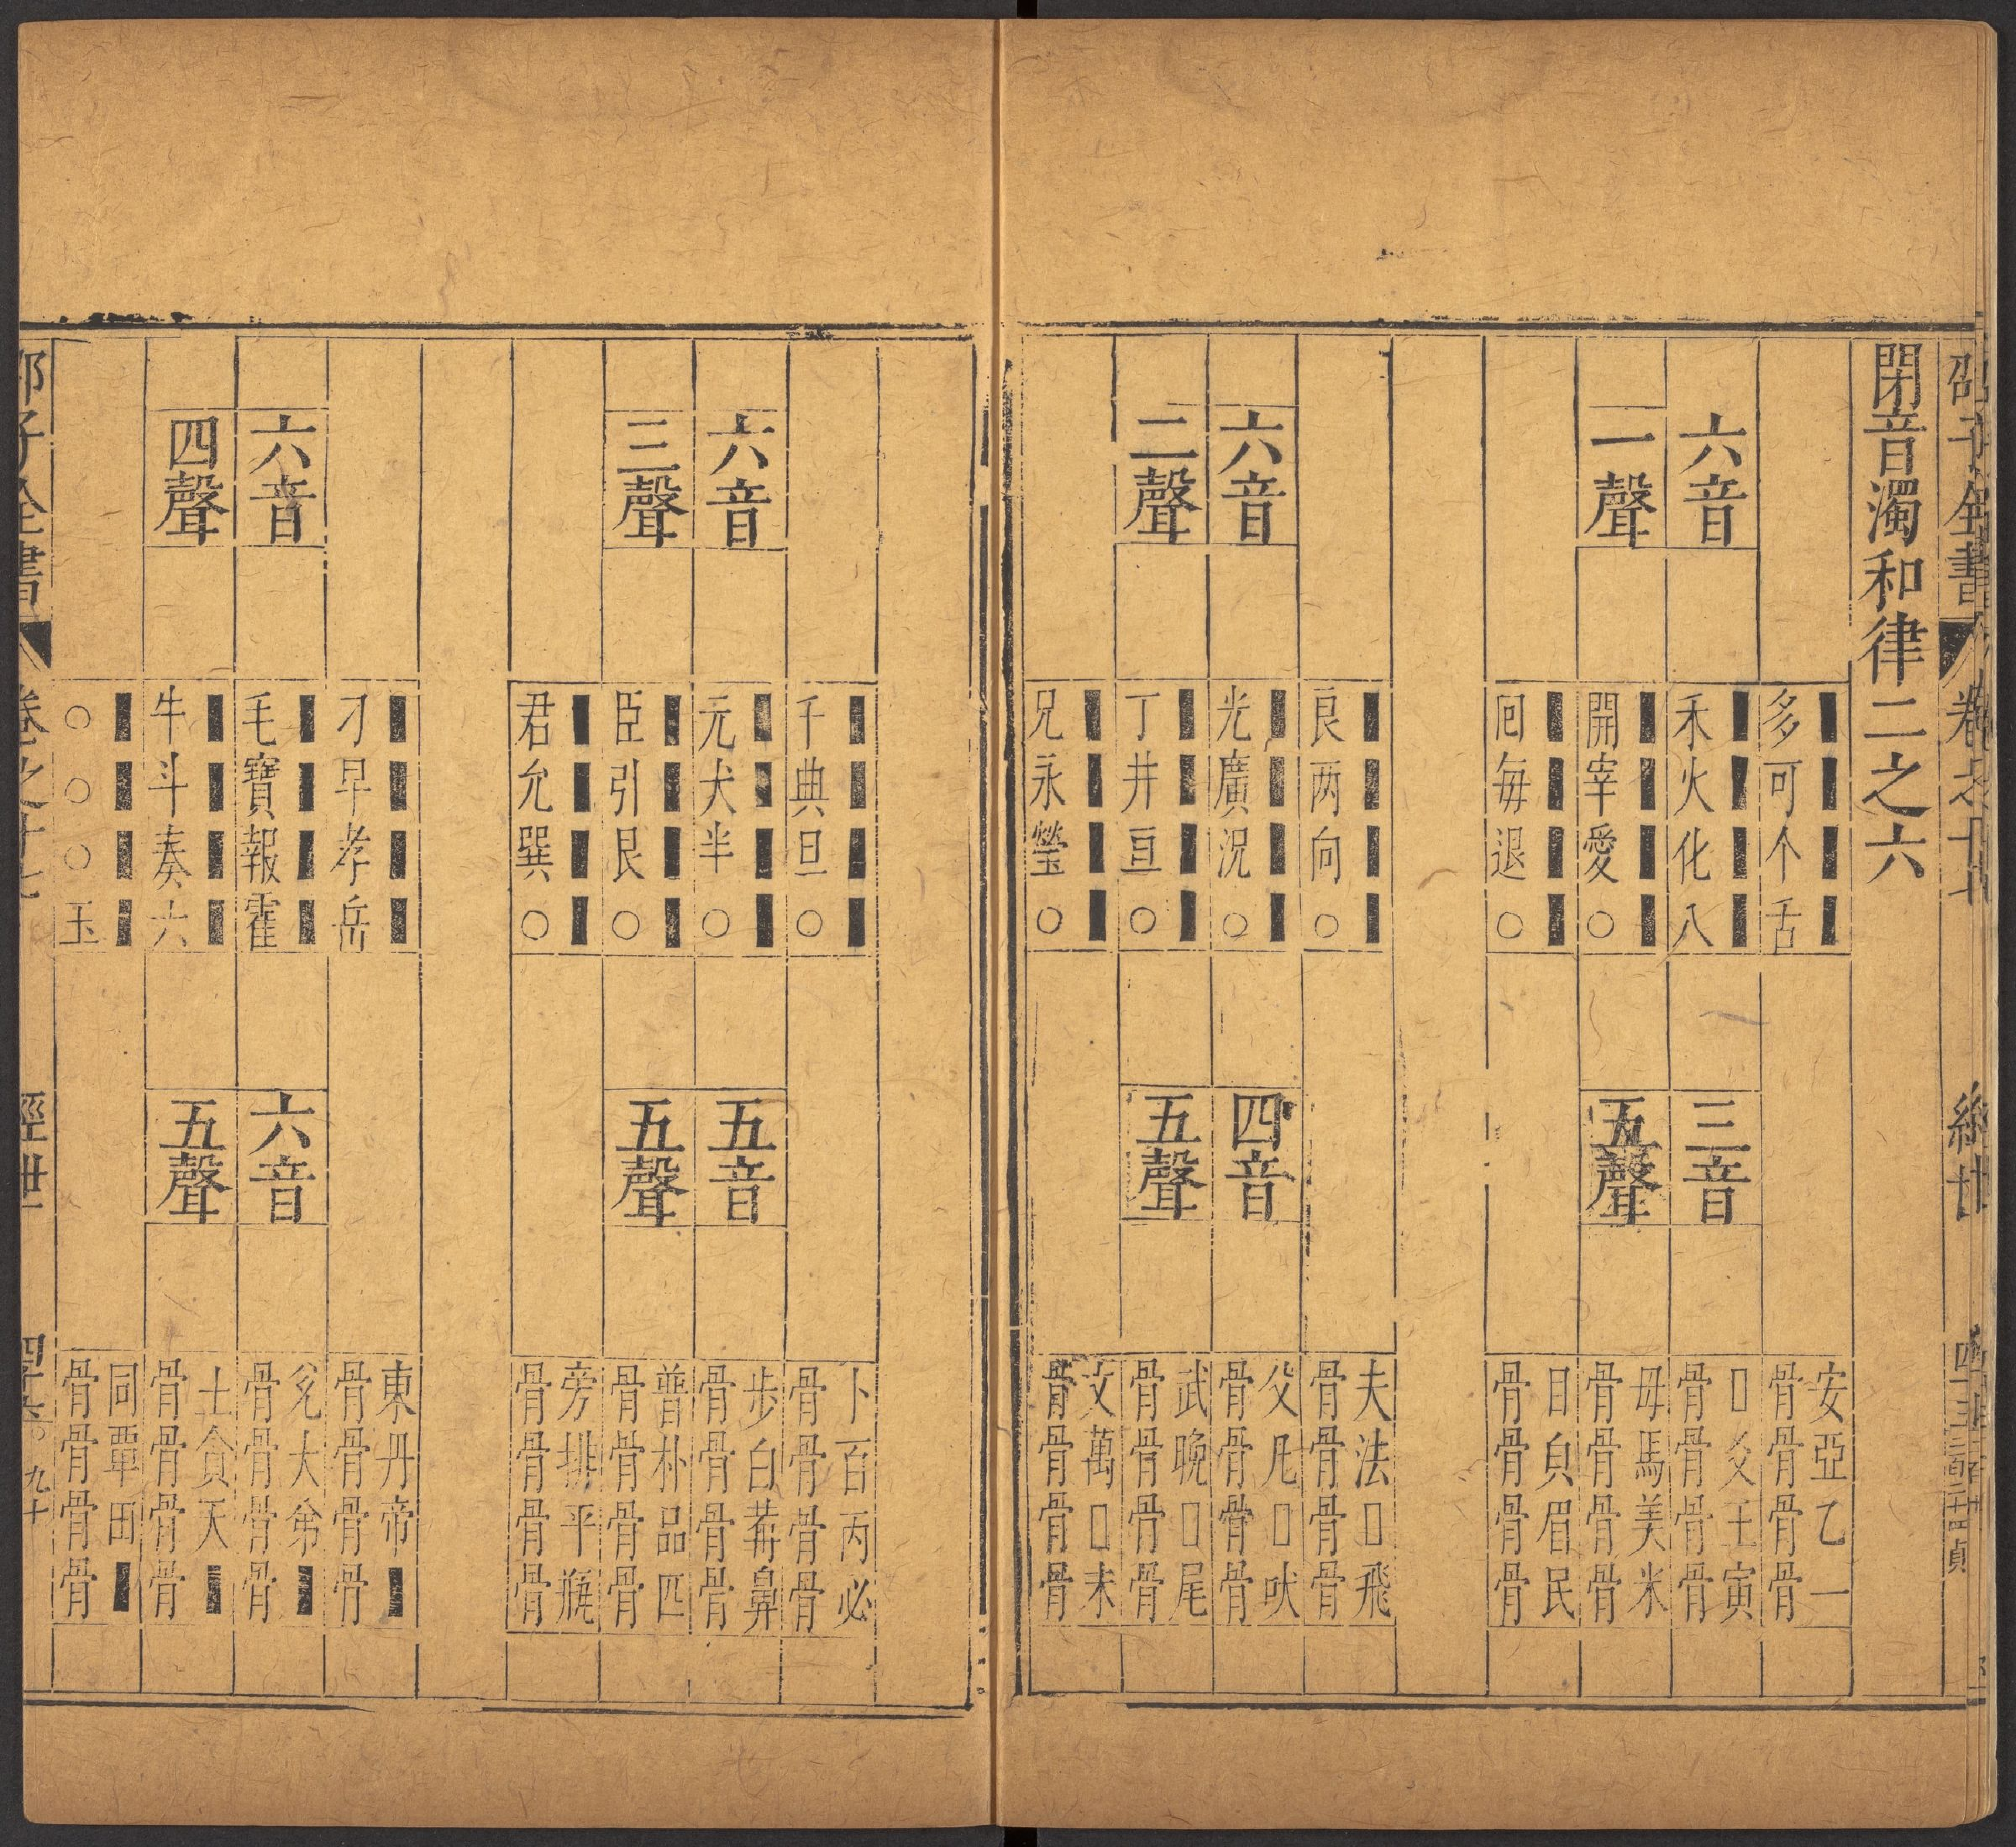 邵子全書
卷之十
經世
閉音濁和律二之六
六音
一聲
多可个舌
禾火化八
開宰愛○
回每退○
三音
五聲
安亞乙一
骨骨骨骨
□爻王寅
骨骨骨骨
母馬美米
骨骨骨骨
目皃眉民
骨骨骨骨
六音
二聲
良两向○
光廣況○
丁井亘○
兄永瑩○
四音
五聲
夫法□飛
骨骨骨骨
父凡□吠
骨骨骨骨
武晚□尾
骨骨骨骨
文萬□未
骨骨骨骨
六音
三聲
千典旦○
元犬半○
臣引艮○
君允巽○
五音
五聲
卜百丙必
骨骨骨骨
步白萆鼻
骨骨骨骨
普朴品匹
骨骨骨骨
旁排平瓶
骨骨骨骨
六音
四聲
刁早孝岳
毛寶報霍
牛斗奏六
○○○玉
六音
五聲
東丹帝
骨骨骨骨
兌大弟
骨骨骨骨
土貪天
骨骨骨骨
同覃田
骨骨骨骨
邵子全書
卷之十七
經世
九十